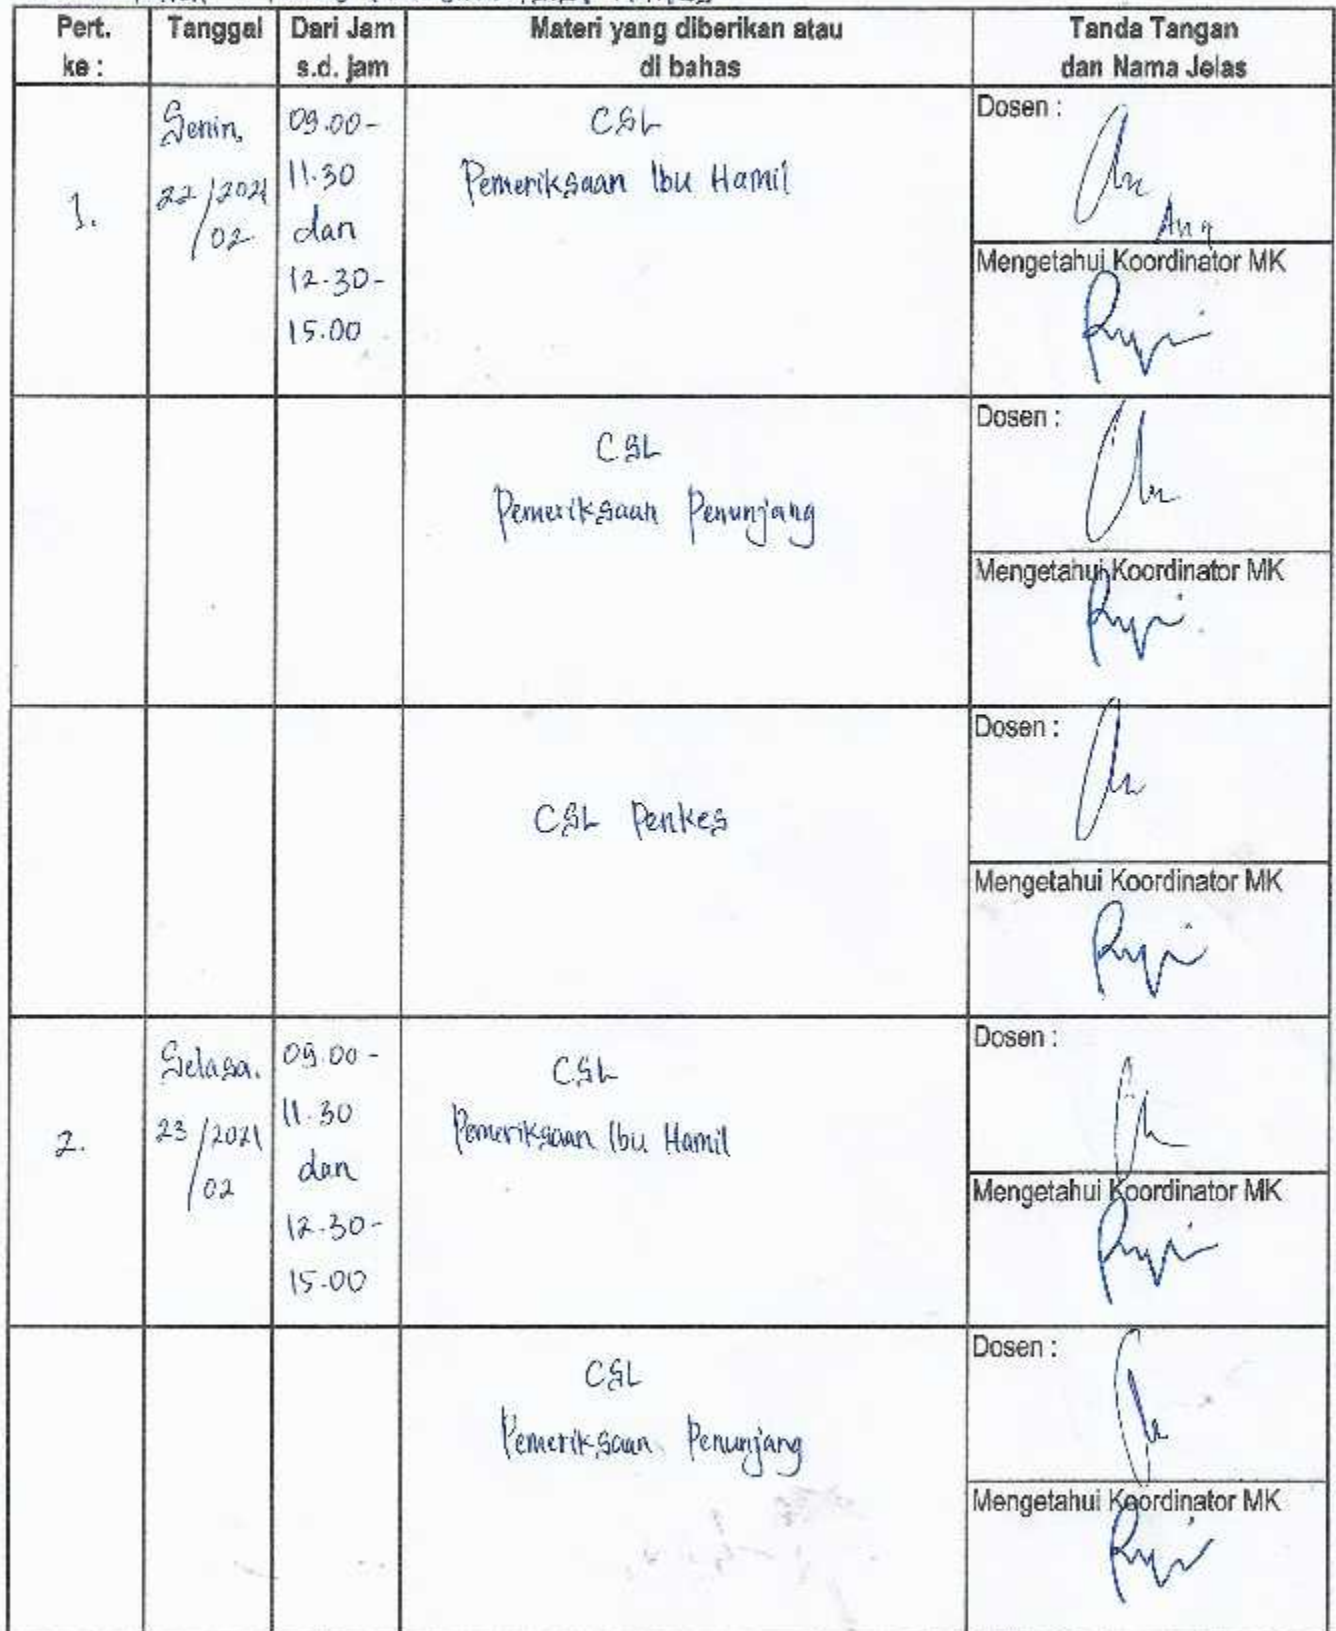 Pert. ke :
Tanggal
Dari Jam s.d. jam
Materi yang diberikan atau di bahas
Tanda Tangan dan Nama Jelas
1.
Senin,
22/02/2021
09.00-
11.30
dan
12.30-
15.00
CSL
Pemeriksaan Ibu Hamil
Dosen :
Mengetahui Koordinator MK
CSL
Pemeriksaan Penunjang
Dosen :
Mengetahui Koordinator MK
CSL Penkes
Dosen :
Mengetahui Koordinator MK
2.
Selasa.
23/02/2021
09.00 -
11.30
dan
12.30-
15.00
CSL
Pemeriksaan Ibu Hamil
Dosen :
Mengetahui Koordinator MK
CSL
Pemeriksaan Penunjang
Dosen :
Mengetahui Koordinator MK